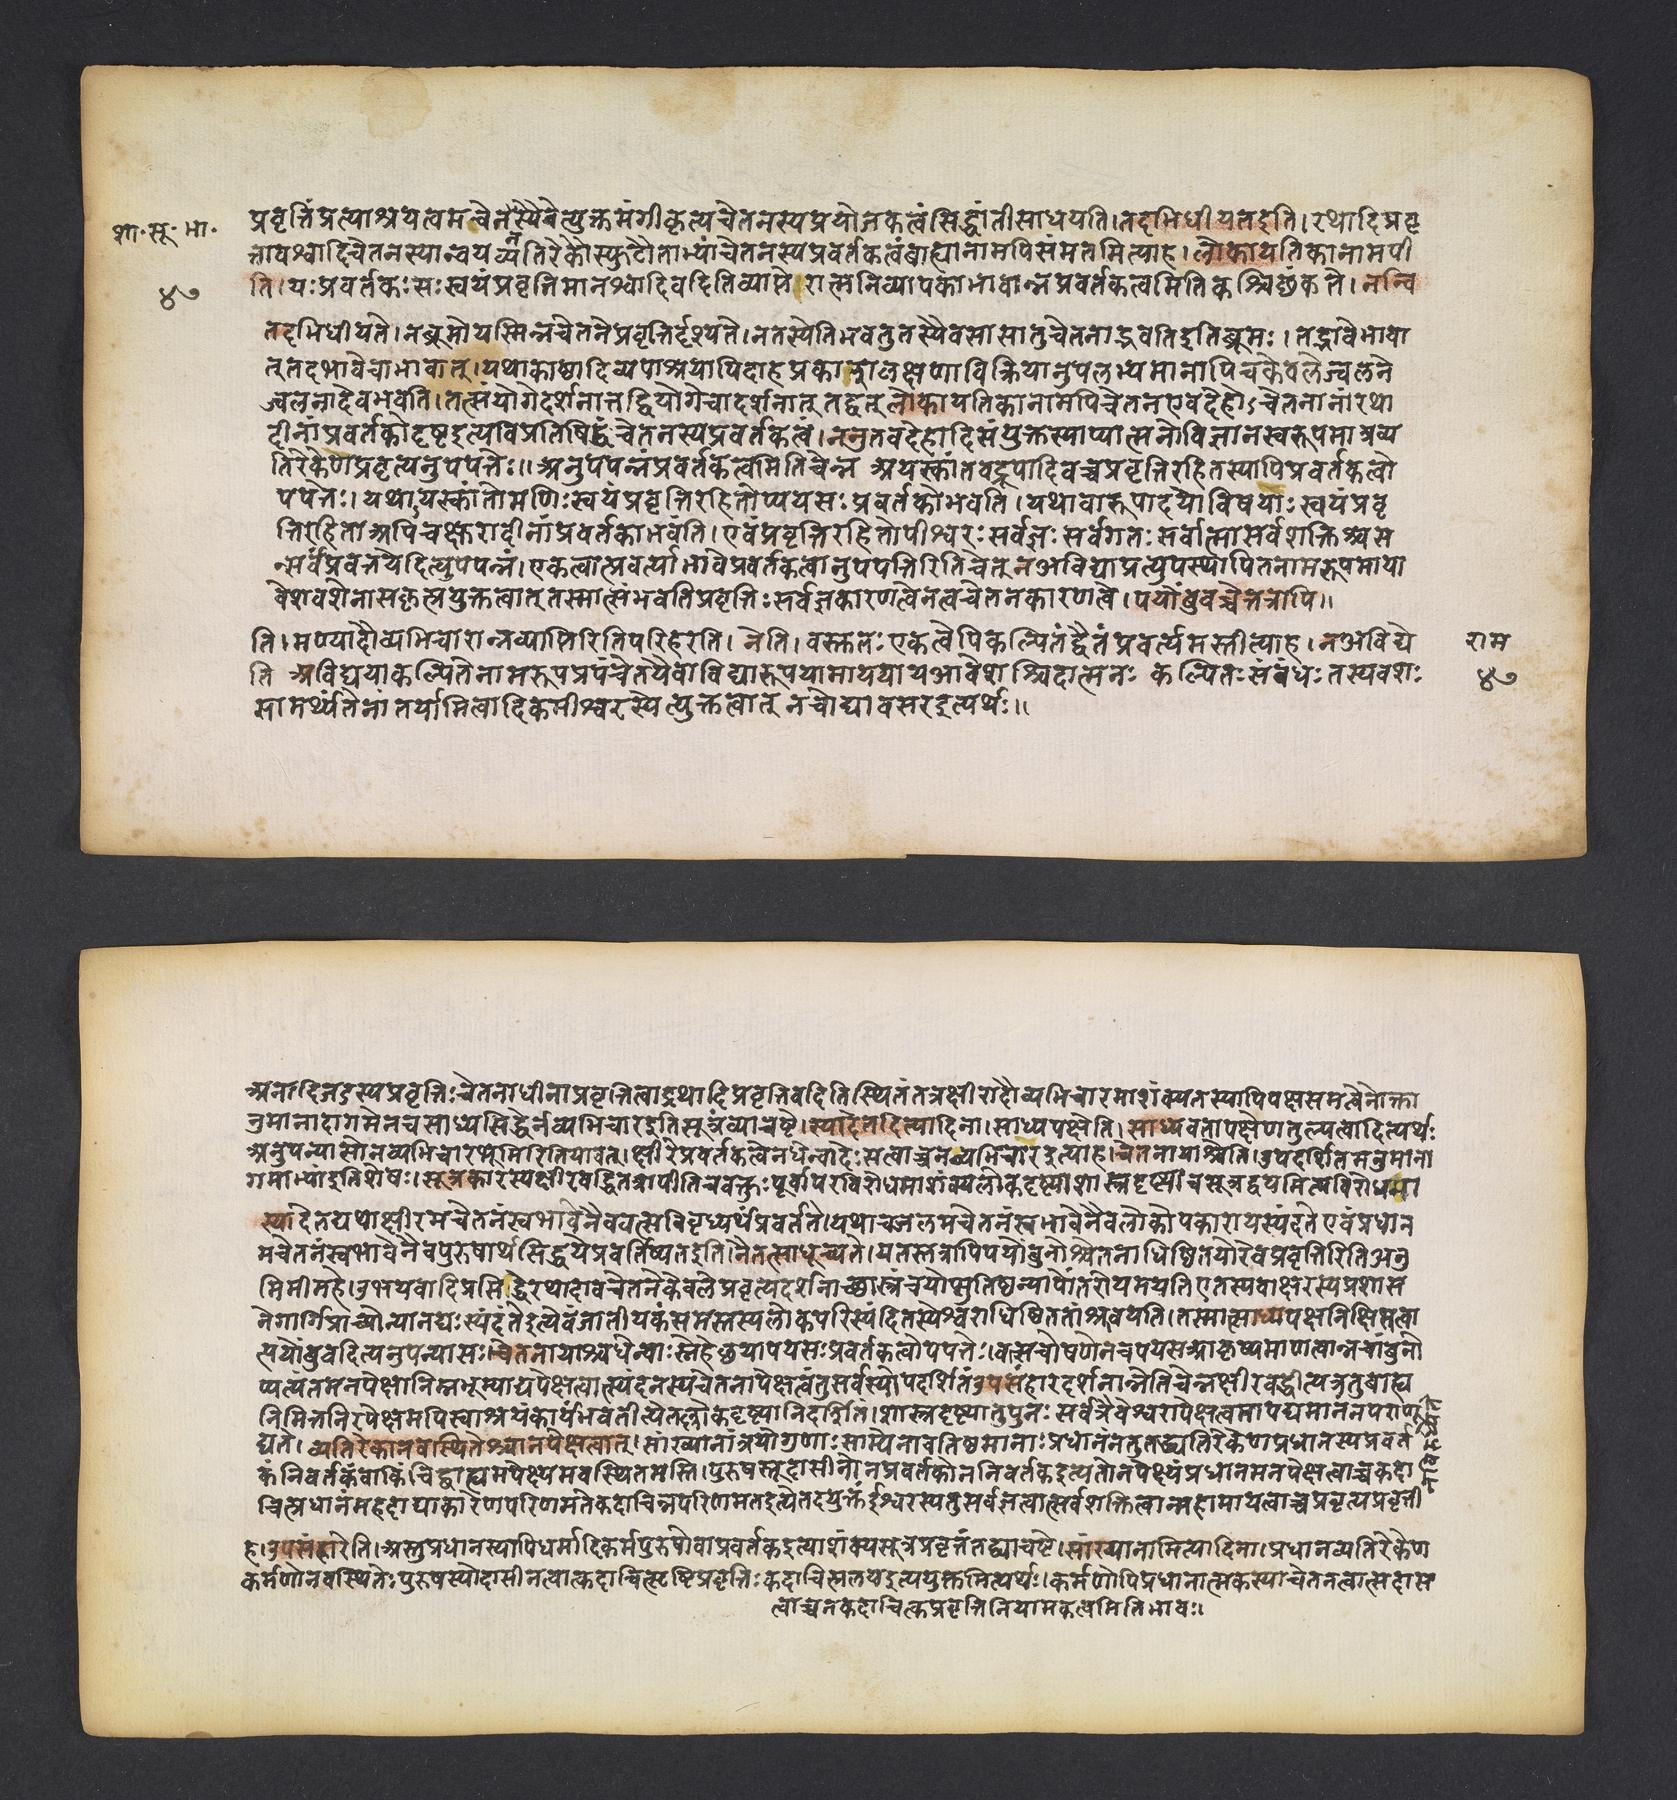 शा॰सू॰भा॰
४७
प्रवृत्तिंप्रत्याश्रयत्वमचेतनस्यैवेत्युक्तमंगीकृत्यचेतनस्यप्रयोजकत्वंसिद्धांतीसाधयति।तदभिधीयतइति।रथादिप्रवृ
त्तावश्वादिचेतनस्यान्वयव्यतिरेकौस्फुटौताभ्यांचेतनस्यप्रवर्तकत्वंबाह्यानामपिसंमतमित्याह।लौकायतिकानामपी
ति।यःप्रवर्तकःसःस्वयंप्रवृत्तिमानश्वादिवदितिव्याप्तेरात्मनिव्यापकाभावान्नप्रवर्तकत्वमितिकश्चिच्छंकते।नन्वि
तदभिधीयते।नब्रूमोयस्मिन्नचेतनेप्रवृत्तिर्दृश्यते।नतस्येतिभवतुतस्यैवसासातुचेतनाद्भवतिइतिब्रूमः।तद्भावेभावा
त्तदभावेचाभावात्।यथाकाष्ठादिव्यपाश्रयापिदाहप्रकाशलक्षणाविक्रियानुपलभ्यमानापिचकेवलेज्वलने
ज्वलनादेवभवति।तत्संयोगेदर्शनात्तद्वियोगेचादर्शनात्तद्वत्लौकायतिकानामपिचेतनएवदेहोऽचेतनानांरथा
दीनांप्रवर्तकोदृष्टइत्यविप्रतिषिद्धंचेतनस्यप्रवर्तकत्वं।ननुतवदेहादिसंयुक्तस्याप्यात्मनोविज्ञानस्वरूपमात्रव्य
तिरेकेणप्रवृत्त्यनुपपत्तेः॥अनुपपन्नंप्रवर्तकत्वमितिचेन्न अयस्कांतवद्रूपादिवच्चप्रवृत्तिरहितस्यापिप्रवर्तकत्वो
पपत्तेः।यथायस्कांतोमणिःस्वयंप्रवृत्तिरहितोप्ययसःप्रवर्तकोभवति।यथावारूपादयोविषयाःस्वयंप्रवृ
त्तिरहिताअपिचक्षुरादीनांप्रवर्तकाभवंति।एवंप्रवृत्तिरहितोपीश्वरःसर्वज्ञःसर्वगतःसर्वात्मासर्वशक्तिश्चस
न्सर्वंप्रवर्तयेदित्युपपन्नं।एकत्वात्प्रवर्त्याभावेप्रवर्तकत्वानुपपत्तिरितिचेत्नअविद्याप्रत्युपस्थापितनामरूपमाया
वेशवशेनासकृत्प्रत्युक्तत्वात्तस्मात्संभवतिप्रवृत्तिःसर्वज्ञकारणत्वेनत्वचेतनकारणत्वे।पयोंबुवच्चेत्तत्रापि॥
ति।मण्यादौव्यभिचारान्नव्याप्तिरितिपरिहरति।नेति।वस्तुतःएकत्वेपिकल्पितंद्वैतंप्रवर्त्यमस्तीत्याह।नअविद्ये
ति अविद्ययाकल्पितेनामरूपप्रपंचेतयैवाविद्यारूपयामाययायआवेशश्चिदात्मनः कल्पितःसंबंधः तस्यवशः
सामर्थ्यंतेनांतर्यामित्वादिकमीश्वरस्येत्युक्तत्वात् नचोद्यावसरइत्यर्थः॥
राम
४७
अनादिजडस्यप्रवृत्तिःचेतनाधीनाप्रवृत्तित्वाद्रथादिप्रवृत्तिवदितिस्थितंतत्रक्षीरादौव्यभिचारमाशंक्यतस्यापिपक्षसमत्वेनोक्ता
नुमानादागमेनचसाध्यसिद्धेर्नव्यभिचारइतिसूत्रंव्याचष्टे।स्यादेतदित्यादिना।साध्यपक्षेति।साध्यवतापक्षेणतुल्यत्वादित्यर्थः
अनुपन्यासोनव्यभिचारभूमिरितियावत्।क्षीरेप्रवर्तकत्वेनधेन्वादेःसत्वाच्चनव्यभिचारइत्याह।चेतनायाश्चेति।उपदर्शितमनुमाना
गमाभ्यांइतिशेषः।सूत्रकारस्यक्षीरवद्धितत्रापीतिचवक्तुःपूर्वापरविरोधमाशंक्यलोकदृष्ट्याशास्त्रदृष्ट्याचसूत्रद्वयमित्यविरोधमा
स्यादेतद्यथाक्षीरमचेतनंस्वभावेनैववत्सविवृध्यर्थंप्रवर्तते।यथाचजलमचेतनंस्वभावेनैवलोकोपकारायस्यंदतेएवंप्रधान
मचेतनंस्वभावेनैवपुरुषार्थसिद्धयेप्रवर्तिष्यतइति।नैतत्साधूच्यते।यतस्तत्रापिपयोंबुनोश्चेतनाधिष्ठितयोरेवप्रवृत्तिरितिअनु
मिमीमहे।उभयवादिप्रसिद्धेरथादावचेतनेकेवलेप्रवृत्त्यदर्शनाच्छास्त्रंचयोप्सुतिष्ठन्यापोंतरोयमयतिएतस्यवाक्षरस्यप्रशास
नेगार्गिप्राच्योन्यानद्यःस्यंदंतेइत्येवंजातीयकंसमस्तस्यलोकपरिस्पंदितस्येश्वराधिष्ठिततांश्रावयति।तस्मात्साध्यपक्षनिक्षिप्तत्वा
त्पयोंबुवदित्यनुपन्यासः।चेतनायाश्चधेन्वाःस्नेहेच्छयापयसःप्रवर्तकत्वोपपत्तेः।वत्सचोषणेनचपयसआकृष्यमाणत्वान्नचांबुनो
प्यत्यंतमनपेक्षानिम्नभूम्याद्यपेक्षत्वात्स्यंदनस्यचेतनापेक्षत्वंतुसर्वस्योपदर्शितंउपसंहारदर्शनान्नेतिचेन्नक्षीरवद्धीत्यत्रतुबाह्य
निमित्तनिरपेक्षमपिस्वाश्रयंकार्यंभवतीत्येतल्लोकदृष्ट्यानिदर्शितं।शास्त्रदृष्ट्यातुपुनःसर्वत्रैवेश्वरापेक्षत्वमापद्यमानंनपराणु
द्यते।व्यतिरेकानवस्थितेश्चानपेक्षत्वात्।सांख्यानांत्रयोगुणाःसाम्येनावतिष्ठमानाःप्रधानंनतुतद्व्यतिरेकेणप्रधानस्यप्रवर्त
कंनिवर्तकंवाकिंचिद्बाह्यमपेक्ष्यमवस्थितमस्ति।पुरुषस्तूदासीनोनप्रवर्तकोननिवर्तकइत्यतोनपेक्ष्यंप्रधानमनपेक्षत्वाच्चकदा
चित्प्रधानंमहदाद्याकारेणपरिणमतेकदाचिन्नपरिणमतइत्येतदयुक्तंईश्वरस्यतुसर्वज्ञत्वात्सर्वशक्तित्वान्महामायत्वाच्चप्रवृत्त्यप्रवृत्ती
ह।उपसंहारेति।अस्तुप्रधानस्यापिधर्मादिकर्मपुरुषोवाप्रवर्तकइत्याशंक्यसूत्रंप्रवृत्तंतद्व्याचष्टे।सांख्यानामित्यादिना।प्रधानव्यतिरेकेण
कर्मणोनवस्थितेःपुरुषस्योदासीनत्वात्कदाचित्सृष्टिप्रवृत्तिःकदाचित्प्रलयइत्ययुक्तमित्यर्थः।कर्मणोपिप्रधानात्मकस्याचेतनत्वात्सदास
त्वाच्चनकदाचित्कप्रवृत्तिनियामकत्वमितिभावः॥